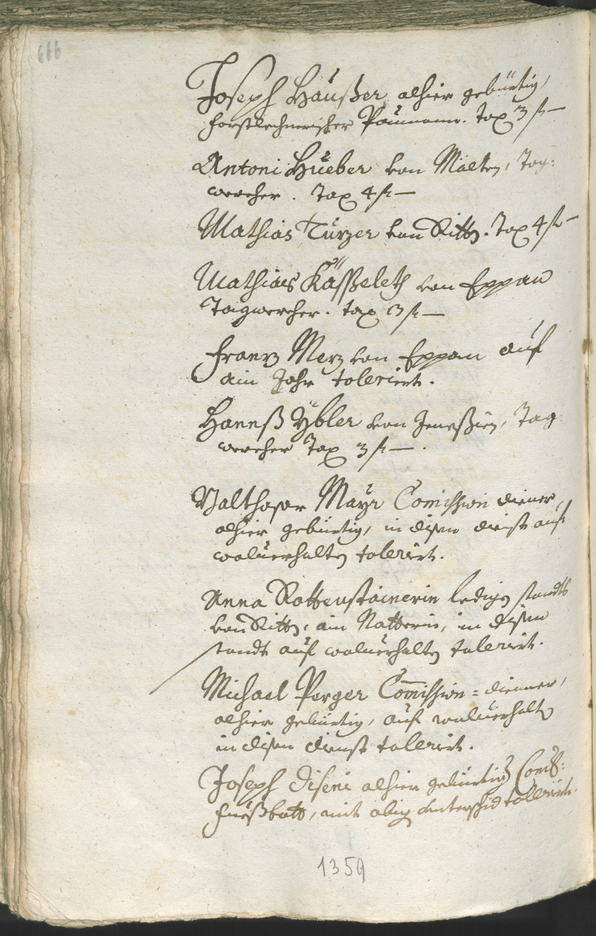 666
Joseph Haußer alhier gebürtig,
Paumann. Tax 3 f —
Antoni Hueber von Mölten, Tag-
wercher. Tax 4 f —
Mathias Türzer von Rittn. Tax 4 f —
Mathias Käßeleth von Eppan
Tagwercher. tax 3 f —
Franz Merz von Eppan auf
ain Jahr toleriert.
Hannß Ybler von Jeneßien, Tag-
wercher Tax 3 f —.
Balthasar Mayr Comission diener,
alhier gebürtig, in disem dienst auf
wolverhalten toleriert.
Anna Rottenstainerin ledigen standts
von Rittn, ain Natterin, in disem
standt auf wolverhalten toleriert.
Michael Porger Comission-diener,
alhier gebürtig, auf wolverhalten
in disem dienst toleriert.
Joseph Diseni alhier gebürtig
fueßbott, mit obig toleriert.
1359